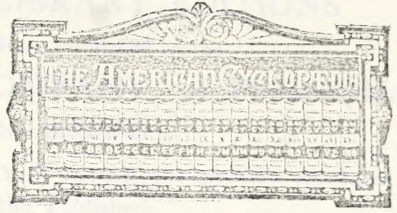 THE AMERICAN CYCLOPÆDIA